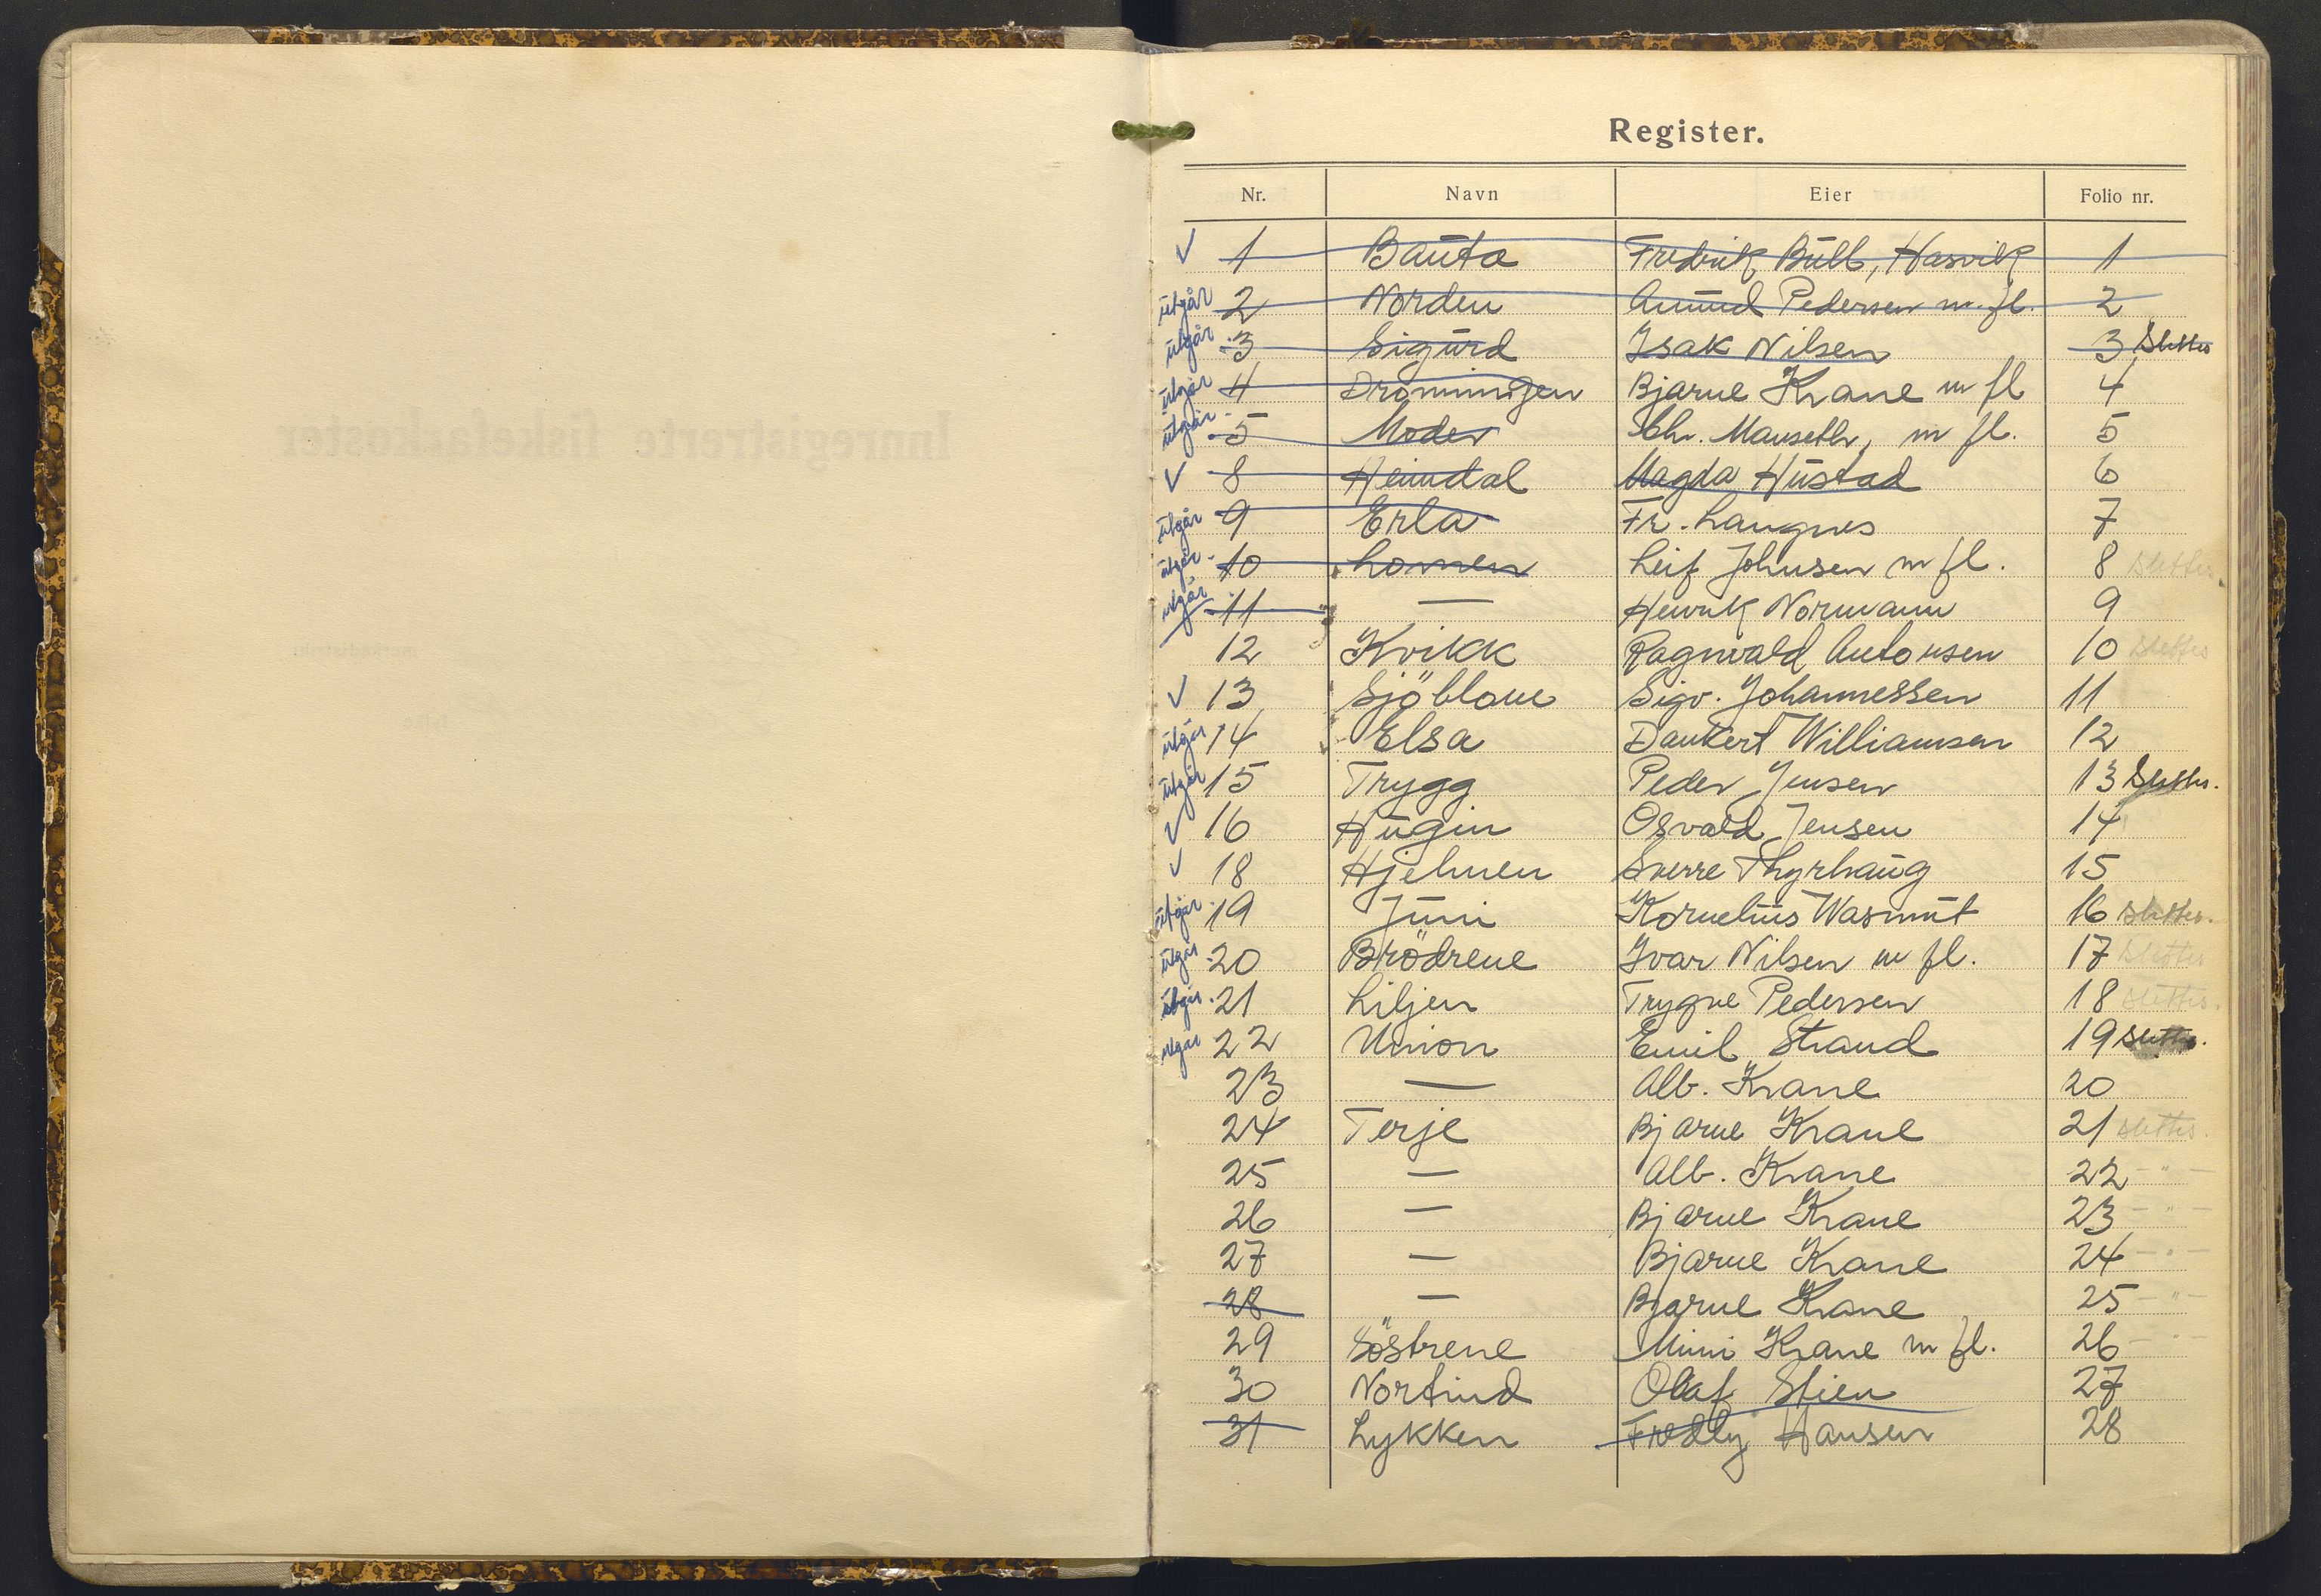 Register.
Nr. Navn Eier Folio nr.
✓ 1 Bauta Fredrik Bull, Hasvik 1
utgår 2 Norden Amund Pedersen m. fl. 2
utgår 3 Sigurd Isak Nilsen 3 Slettes
utgår 4 Dronningen Bjarne Krane m fl 4
utgår 5 Moder Chr. Mauseth, m fl. 5
✓ 8 Heimdal Magda Hustad 6
utgår 9 Erla Fr. Langnes 7
utgår 10 Lommen Leif Johnsen m fl. 8 Slettes.
utgår 11 — Henrik Normann 9
12 Kvikk Ragnvald Antonsen 10 Slettes
✓ 13 Sjöblom Sigv. Johannessen 11
utgår 14 Elsa Dankert Williamsen 12
utgår 15 Trygg Peder Jensen 13 Slettes.
✓ 16 Hugin Osvald Jensen 14
✓ 18 Hjelmen Sverre Thyrhaug 15
utgår 19 Juni Kornelius Wasmut 16 Slettes.
utgår 20 Brödrene Ivar Nilsen m fl. 17 Slettes
utgår. 21 Liljen Trygve Pedersen 18 Slettes.
utgår 22 Union Emil Strand 19 Slettes.
23 — Alb. Krane 20
24 Terje Bjarne Krane 21 slettes.
25 — Alb. Krane 22 - " -
26 — Bjarne Krane 23 - " -
27 — Bjarne Krane 24 - " -
28 — Bjarne Krane 25 - " -
29 Söstrene Mimi Krane m fl. 26 - " -
30 Nortind Olaf Stien 27
31 Lykken Fredly Hansen 28
Innregistrerte fiskefarkoster